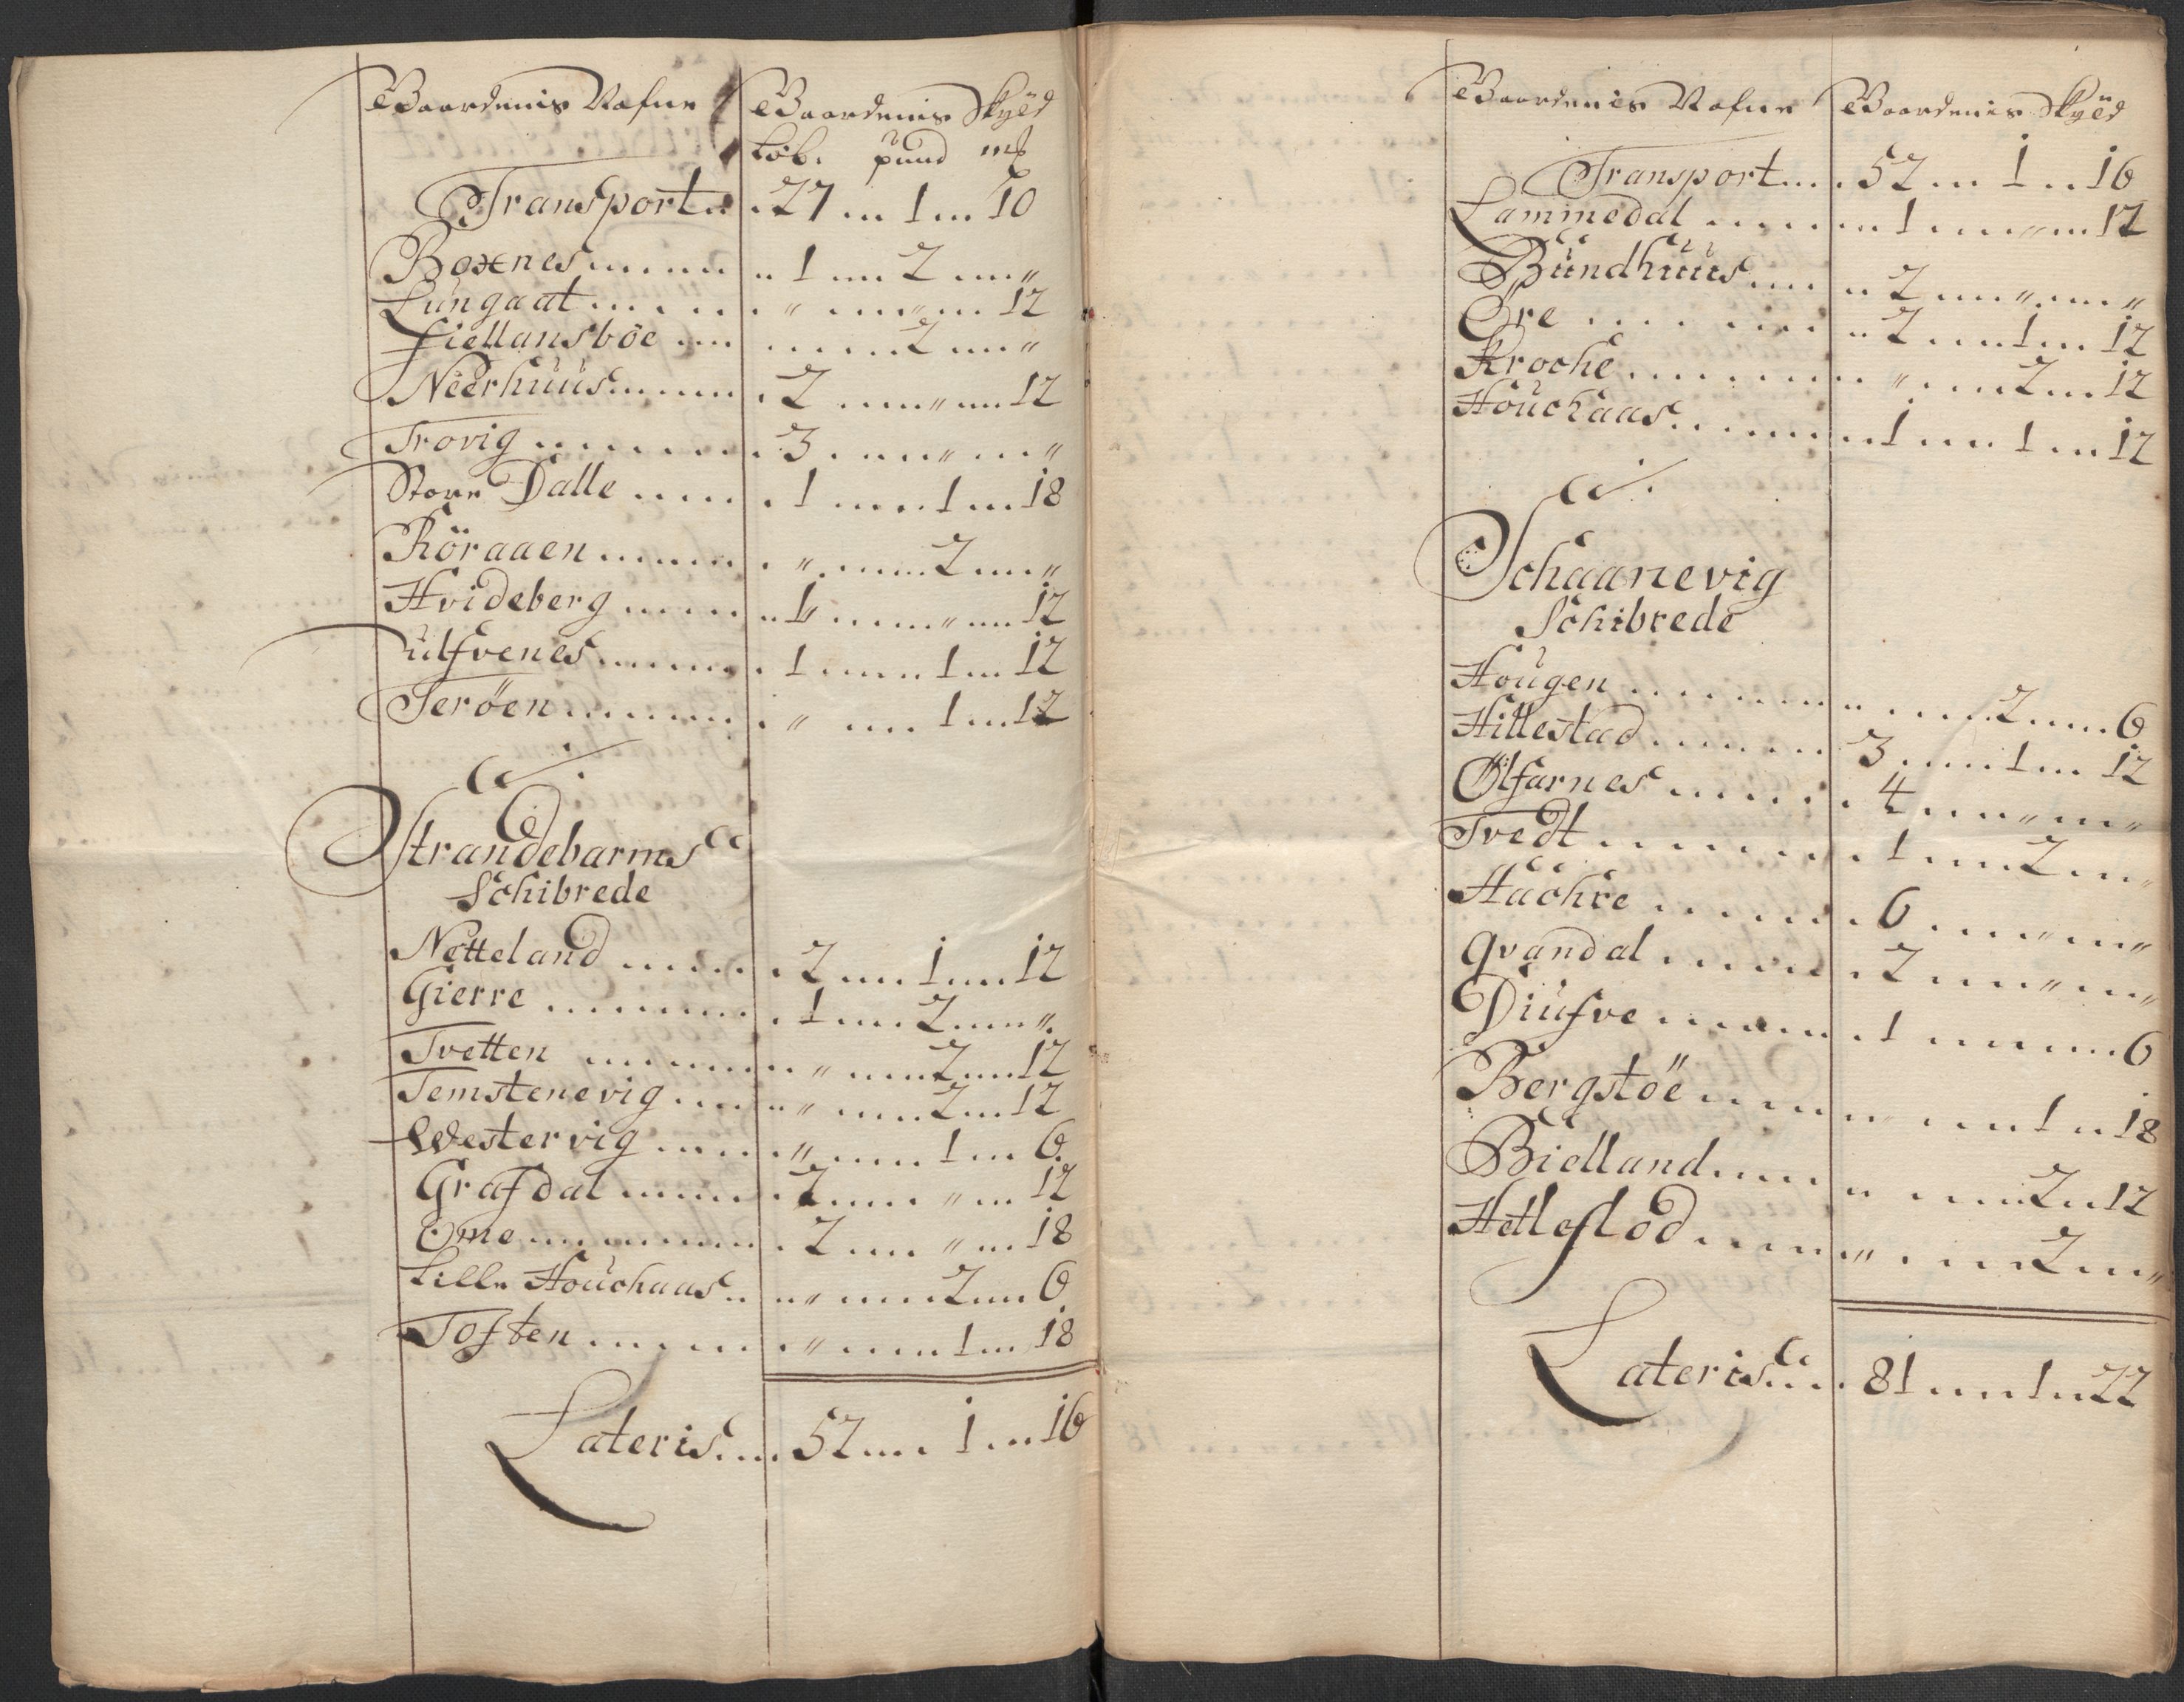 Gaardenis Nafne Gaardenis Skyld
Løb. pund mk
Transport.. 27 ... 1 ... 10
Boxnes ........ 1 .... 2 .... "
Lungaat ....... " ..... " .... 12
Fiellansböe .... ...... 2 .... "
Neerhuus ...... 2 ..... " .... 12
Trovig ......... 3 ..... " .... "
Store Dalle ..... 1 ..... 1 .... 18
Röraaen ....... " ..... 2 .... "
Hvideberg ...... 1 ..... " .... 12
Ulfvenes ....... 1 ..... 1 .... 12
Terøen ........ " .... 1 .... 12
Strandebarms
Schibrede
Netteland ...... 2 .... 1 .... 12
Gierre ........ 1 .... 2 .... "
Tvetten ....... " .... 2 .... 12
Temstenevig .... " .... 2 .... 12
Westervig ..... " .... 1 .... 6
Grafdal ....... 2 .... " .... 12
Ome .......... 2 .... " .... 18
Lille Houchaas .. " .... 2 .... 6
Toften ........ " .... 1 .... 18
Lateris.... 52 .... 1 .... 16
Gaardenis Nafne Gaardenis Skyld
Transport.... 52 ... 1 ... 16
Lammedal ....... 1 .... " .... 12
Bundhuus ..... 2 .... " .... "
Ore .... .... 2 .... 1 .... 12
Kroche ........ " .... 2 .... 12
Houchaas ....... 1 .... 1 .... 12
Schaanevig
Schibrede
Hougen ........ .... 2 .... 6
Hillestad ....... 3 .... 1 .... 12
Ølfarnes ...... 4 .... " .... "
Tvedt ........ 1 .... 2 .... "
Hachre ....... 6 .... " .... "
Qvandal ...... 2 .... " .... "
Diufve ....... 1 ........ 6
Bergstöe ..... " .... 1 .. 18
Bielland ..... " .... 2 .. 12
Hetleflod ..... " .... 2 .... "
Lateris .... 81 .... 1 .. 22